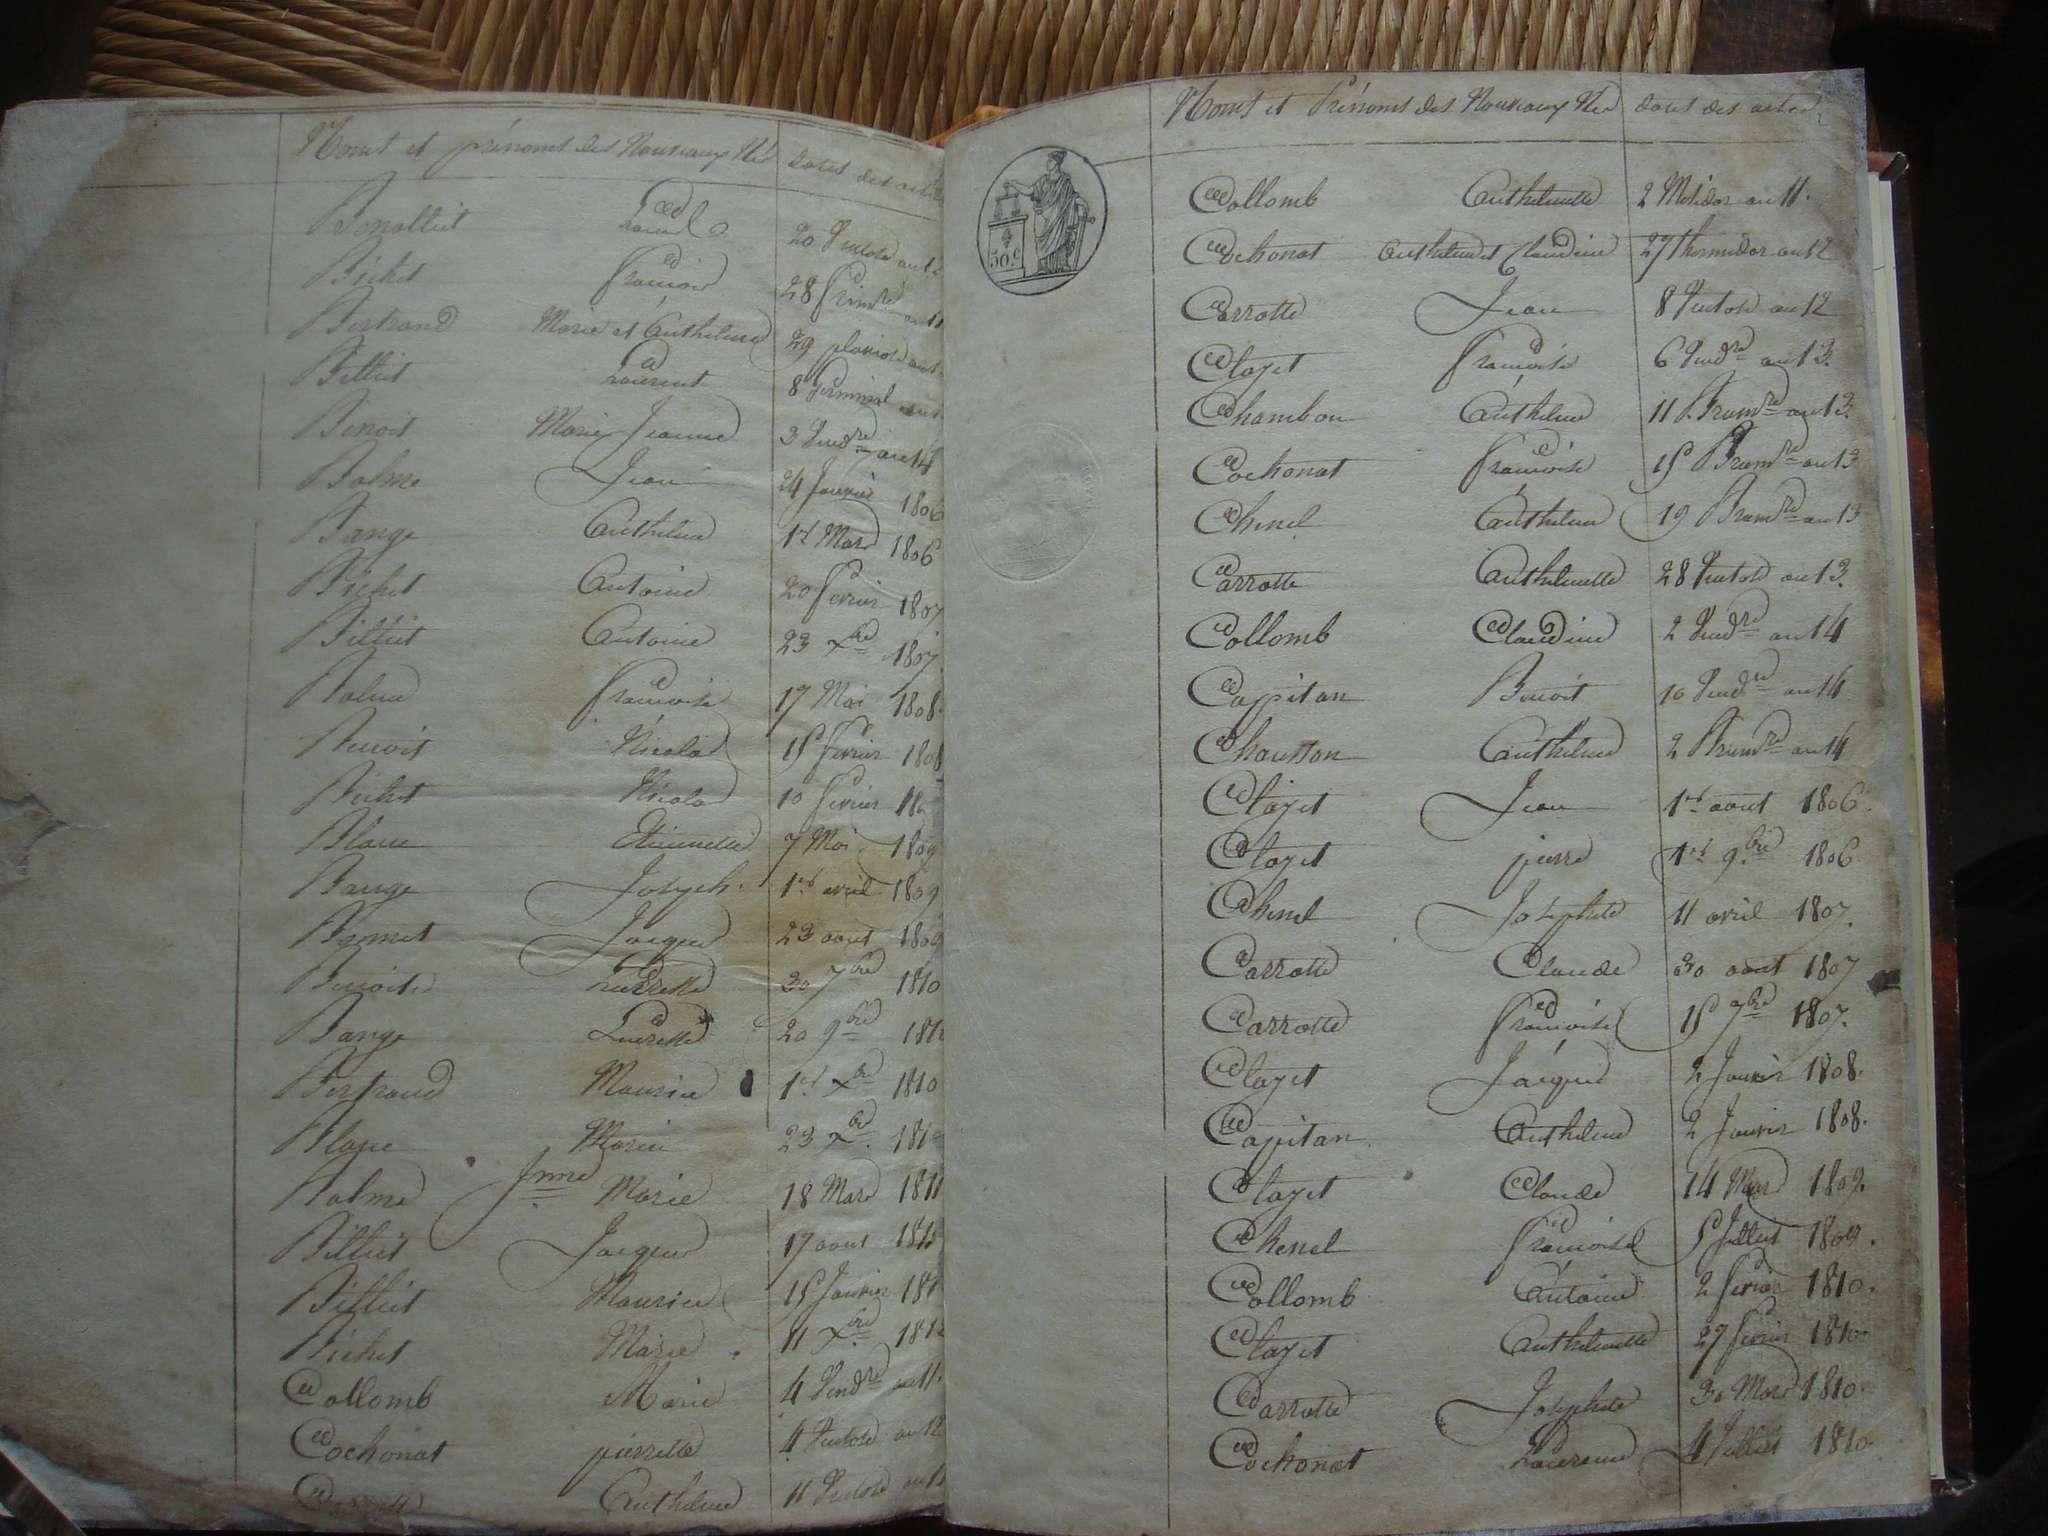 Noms et prénoms des Nouveaux Nés dates des actes
Bichet françois 28 frimre
Bertrand Marie et Anthelme 29 pluviose
Billiet Laurent 8 Germinal
Benoit Marie Jeanne 3 Vendre an 14
Balme Jean 24 Janvier 1806
Bange Anthelme 1er Mars 1806
Bichet Antoine 20 fevrier 1807
Billiet Antoine 23 Xbre 1807.
Balme françoise 17 Mai 1808.
Benoit Nicolas 15 fevrier 1808
Bichet Nicolas 10 fevrier
Blanc Etiennette 7 Mai 1809
Bange Joseph. 1er avril 1809
Bonnet Jacques 23 aout 1809
Benoite Pierrette 30 7bre 1810
Bange 20 9bre
Bertrand Maurice 1er Xbre 1810
Blanc Marie 23 Xbre.
Balme Jnne Marie 18 Mars 1811
Billiet Jacques 17 aout
Billiet Maurice 15 Janvier
Bichet Marie 11 Xbre 1812
Collomb Marie 4 Vendre an 11.
Cochonat pierrette 4 Ventose an 12
Anthelme 11 Ventose
Noms et Prénoms des Nouveaux Nés dates des actes
50.c
Collomb Anthelmette 2 Messidor an 11.
Cochonat Anthelme et Claudine 27 thermidor an 12
Carrotte Jean 8 Ventose an 12
Clayet françoise 6 Vendre an 13.
Chambon Anthelme 11 Brumre an 13.
Cochonat françoise 15 Brumre an 13
Chenel Anthelme 19 Brumre an 13
Carrotte Anthelmette 28 Ventose an 13.
Collomb Claudine 2 Vendre an 14
Capitan Benoit 10 Vendre an 14
Chausson Anthelme 2 Brumre an 14
Clayet Jean 1er aout 1806.
Clayet pierre 1er 9.bre 1806
Chenel Josephte 11 avril 1807.
Carrotte Claude 30 aout 1807
Carrotte françoise 15 7bre 1807.
Clayet Jacques 2 Janvier 1808.
Capitan. Anthelme 2 Janvier 1808.
Clayet Claude 14 Mars 1809.
Chenel françoise 5 Juillet 1809.
Collomb Antoine 2 fevrier 1810.
Clayet Anthelmette 27 fevrier 1810
Carrotte Josephte 30 Mars 1810.
Cochonat Laurence 4 Juillet 1810